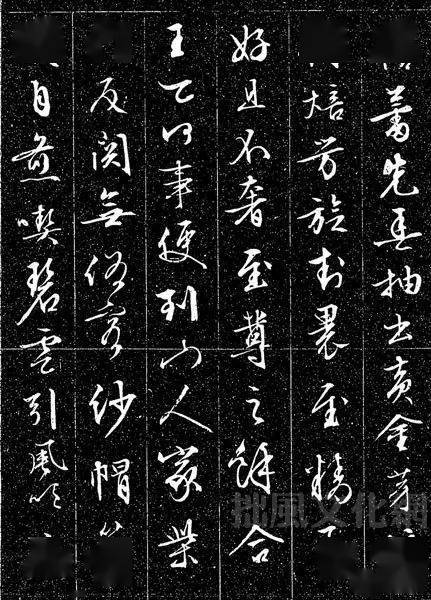 蕾先春抽出黃金芽
焙芳旋封裹至精
好且不奢至尊之餘合
王公何事便到山人家柴
反關無俗客紗帽
自煎喫碧雲引風吹
拙風文化網